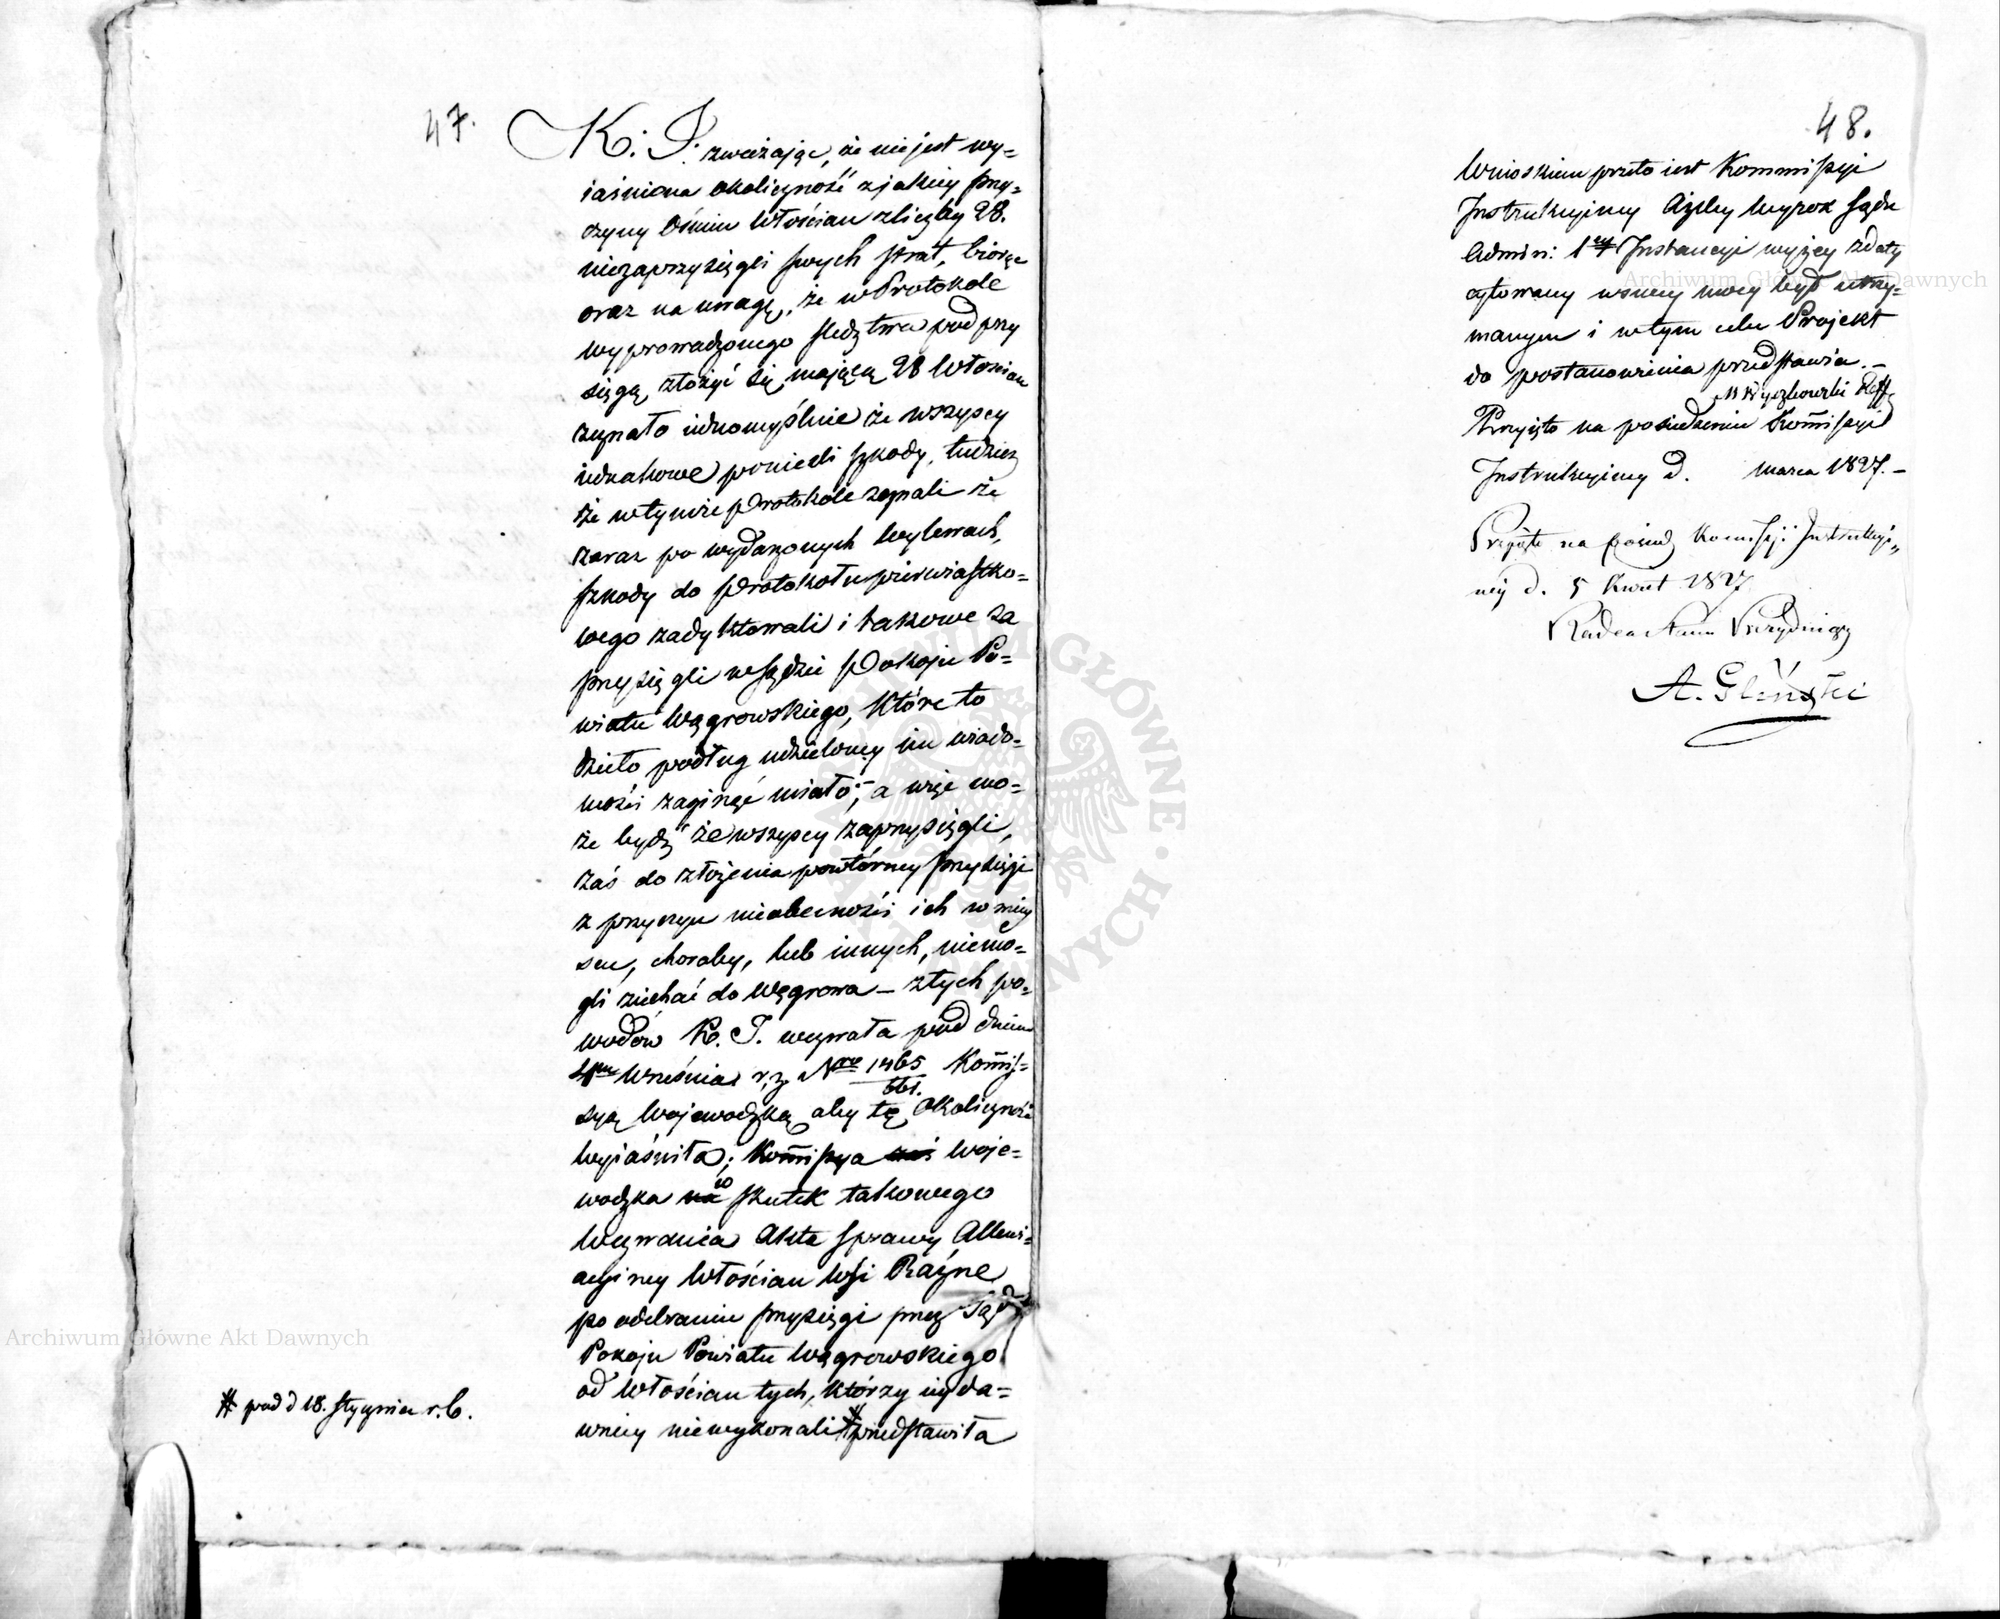 47.
K. I. zważając, że nie jest wy=
iaśniona okoliczność z jakiey przy=
czyny Ośmiu Włościan z liczby 28.
niezaprzysięgli swych strat, biorąc
oraz na uwagę, że w Protokole
wyprowadzonego śledztwa pod przy
sięgą złożyć się maiącą 28 Włościan
zeznało iednomyślnie że wszyscy
iednakowe ponieśli szkody, tudzież
że w tymże Protokole zeznali że
zaraz po wydarzonych wylewach,
szkody do Protokołu pierwiastko=
wego zadyktowali i takowe za
przysięgli w Sądzie Pokoju Po=
wiatu Węgrowskiego, które to
dzieło podług udzieloney im wiado=
mości zaginąć miało; a więc mo=
że bydź że wszyscy zaprzysięgli,
zaś do złożenia powtórney przysięgi
z przyczyn nieobecności ich w miey
scu, choroby, lub innych, niemo=
gli ziechać do Węgrowa – z tych po=
wodów K. I. wezwała pod dniem
4m Września r. z. Nro 1465/661. Kommis=
syą Woiewodzką aby tę Okoliczność
wyiaśniła; Kommissya zaś Woje=
wodzka na w skutek takowego
Wezwania Akta Sprawy Allewi=
acyiney Włościan Wsi Rażne
po odebraniu przysięgi przez Sąd
Pokoju Powiatu Węgrowskiego
od Włościan tych, którzy iey da=
wniey niewykonali # przedstawiła
# pod d 18. Stycznia r. b.
48.
Wnioskiem przeto iest Kommissyi
Instrukcyiney Ażeby Wyrok Sądu
Admin: 1ey Instancyi wyżey z daty
cytowany w swey mocy był utrzy=
manym i w tym celu Projekt
do postanowienia przedstawia. –
Przyięto na posiedzeniu Kommissyi
Instrukcyiney D. Marca 1827. –
Przyięte na posied Komissyi Instrukcyi„
ney d. 5 Kwiet 1827
Radca Stanu Prezyduiący
A. Gliński
Archiwum Główne Akt Dawnych
Archiwum Główne Akt Dawnych